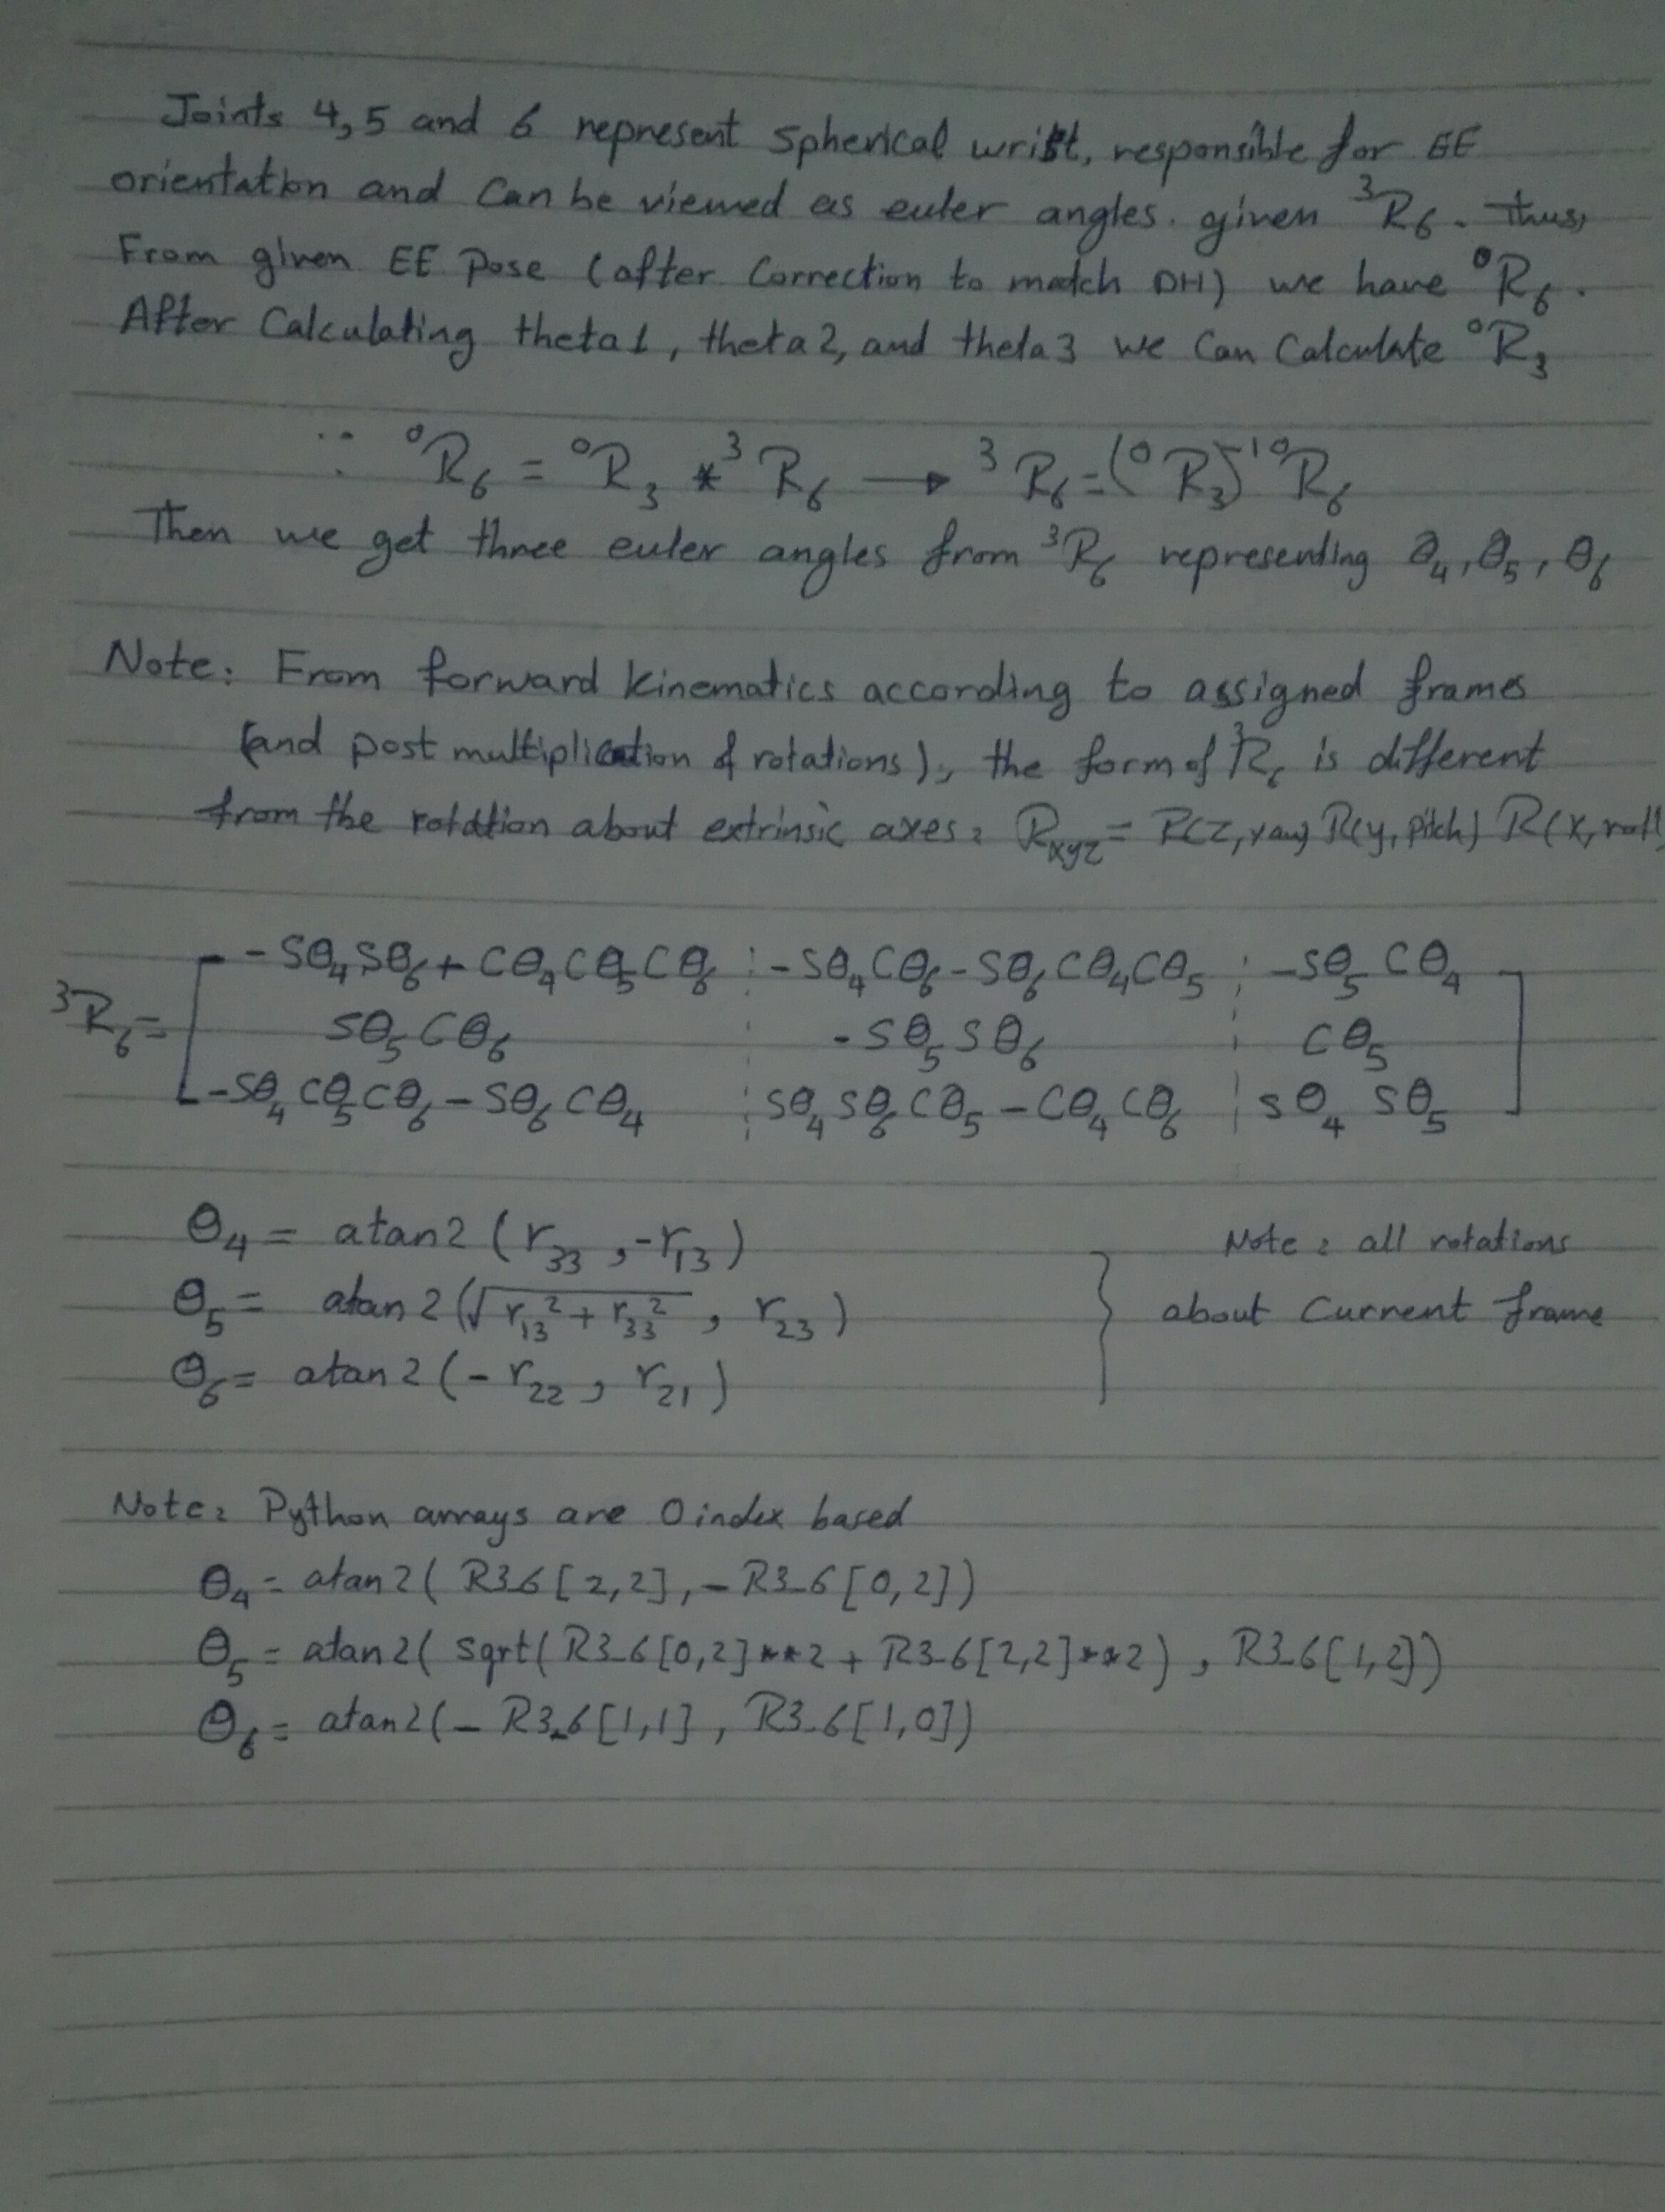 Joints 4,5 and 6 represent spherical wrist, responsible for EE
orientation and can be viewed as euler angles. given ³R₆. Thus,
From given EE pose (after correction to match DH) we have ⁰R₆.
After Calculating theta1, theta2, and theta3 we can calculate ⁰R₃
∵ ⁰R₆ = ⁰R₃ * ³R₆ → ³R₆ = (⁰R₃)⁻¹ ⁰R₆
Then we get three euler angles from ³R₆ representing θ₄, θ₅, θ₆
Note: From forward kinematics according to assigned frames
(and post multiplication of rotations), the form of ³R₆ is different
from the rotation about extrinsic axes: Rxyz = R(z, yaw) R(y, pitch) R(x, roll)
-Sθ₄Sθ₆ + Cθ₄Cθ₅Cθ₆ ¦ -Sθ₄Cθ₆ - Sθ₆Cθ₄Cθ₅ ¦ -Sθ₅Cθ₄
³R₆ = Sθ₅Cθ₆ ¦ -Sθ₅Sθ₆ ¦ Cθ₅
-Sθ₄Cθ₅Cθ₆ - Sθ₆Cθ₄ ¦ Sθ₄Sθ₆Cθ₅ - Cθ₄Cθ₆ ¦ Sθ₄Sθ₅
θ₄ = atan2(r₃₃, -r₁₃)
θ₅ = atan2(√(r₁₃² + r₃₃²), r₂₃)
θ₆ = atan2(-r₂₂, r₂₁)
Note: all rotations
about current frame
Note: Python arrays are 0 index based
θ₄ = atan2(R36[2,2], -R3_6[0,2])
θ₅ = atan2(sqrt(R3_6[0,2]**2 + R3_6[2,2]**2), R3_6[1,2])
θ₆ = atan2(-R3_6[1,1], R3_6[1,0])